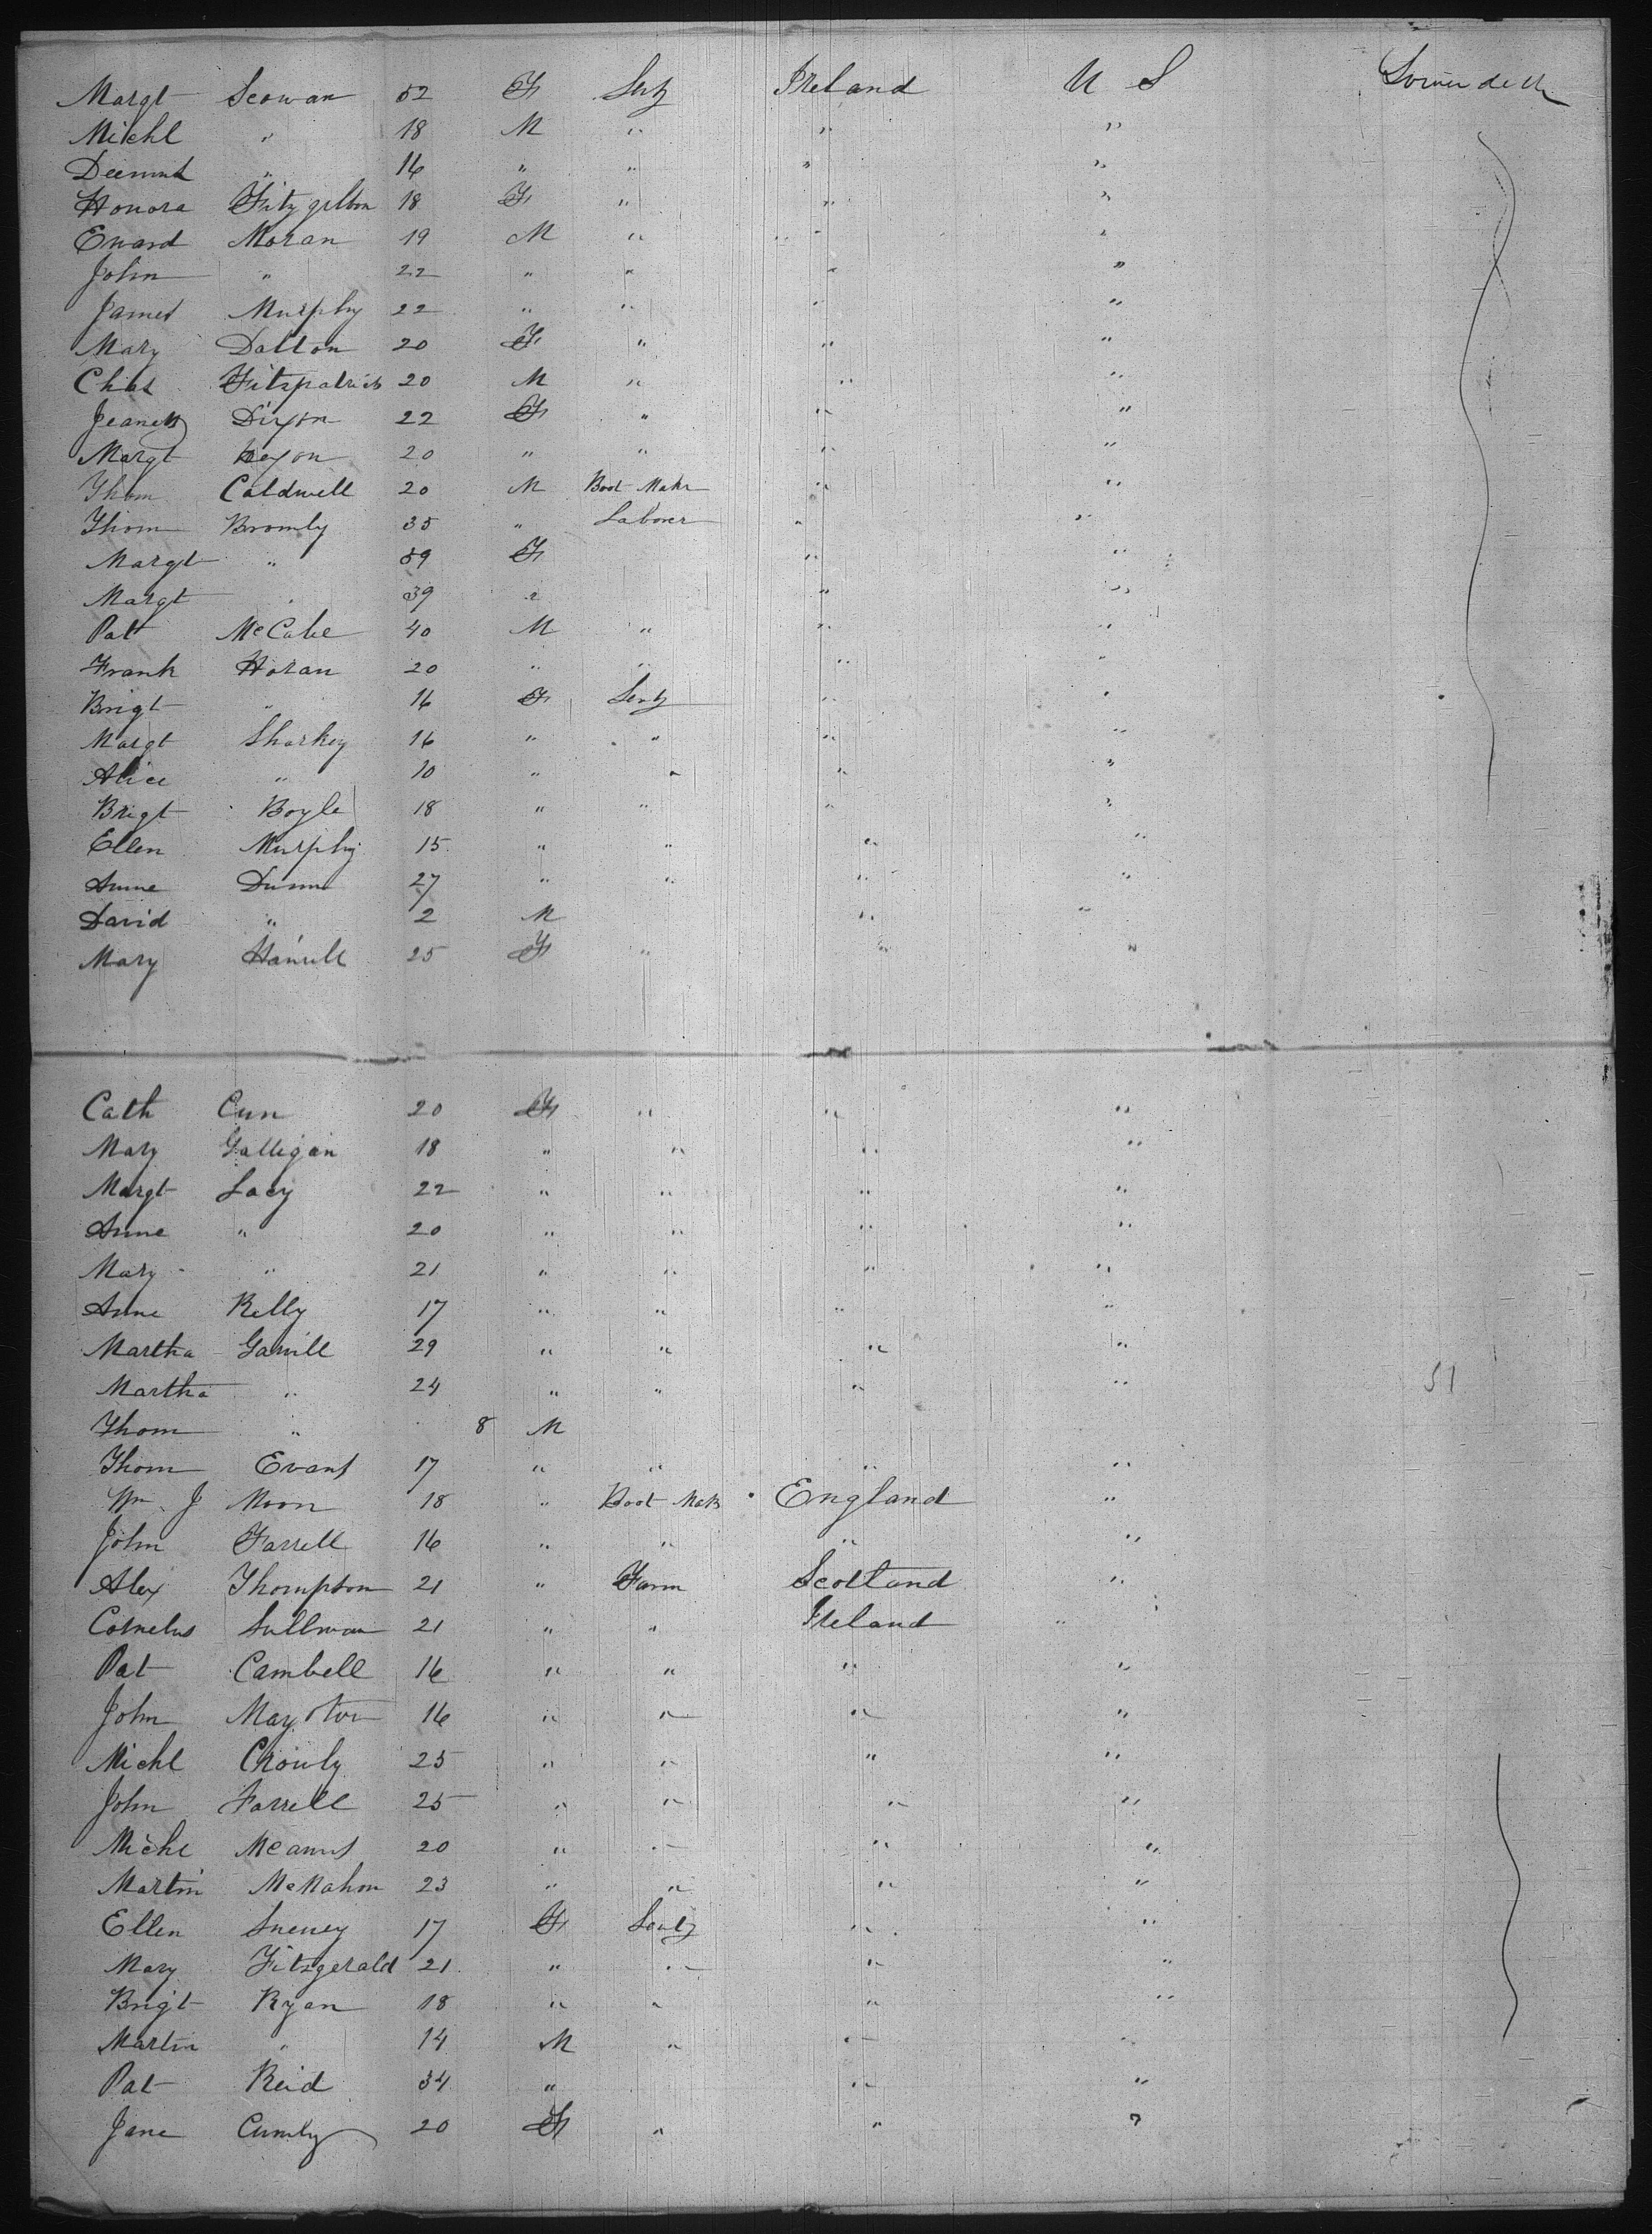 Margt Scowan 52 F Servt Ireland U S Lower deck
Michl " 18 M " " "
16 " " " "
Honora Fitzgibbon 18 F " " "
Edward Moran 19 M " " "
John " 22 " " " "
James Murphy 22 " " " "
Mary Dalton 20 F " " "
Chas Fitzpatrick 20 M " " "
Jeanett Dixon 22 F " " "
Margt Keyon 20 " " " "
Thom Caldwell 20 M Boot Makr " "
Thom Bromly 35 " Laborer " "
Margt " 59 F " "
Margt " 39 " " "
Pat McCabe 40 M " " "
Frank Horan 20 " " " "
Brigt " 16 F Servt " "
Margt Sharkey 16 " " " "
Alice " 10 " " " "
Brigt Boyle 18 " " " "
Ellen Murphy 15 " " " "
Anne Dunne 27 " " " "
David " 2 M " "
Mary Hamill 25 F " " "
Cath Cun 20 F " " "
Mary Galligan 18 " " " "
Margt Lacy 22 " " " "
Anne " 20 " " " "
Mary " 21 " " " "
Anne Kelly 17 " " " "
Martha Gamill 29 " " " "
Martha " 24 " " " " 51
Thom " 8 M
Thom Evans 17 " " " "
Wm J Moon 18 " Boot Makr England "
John Farrell 16 " " " "
Alex Thompson 21 " Farm Scotland "
Cornelus Sullivan 21 " " Ireland "
Pat Cambell 16 " " " "
John 16 " " " "
Michl Crowly 25 " " " "
John Farrell 25 " " " "
Michl Mcanus 20 " " " "
Martin McMahon 23 " " " "
Ellen Sweney 17 F Servt " "
Mary Fitzgerald 21 " " " "
Brigt Ryan 18 " " " "
Martin " 14 M " " "
Pat Reid 34 " " "
Jane Cumly 20 F " " "